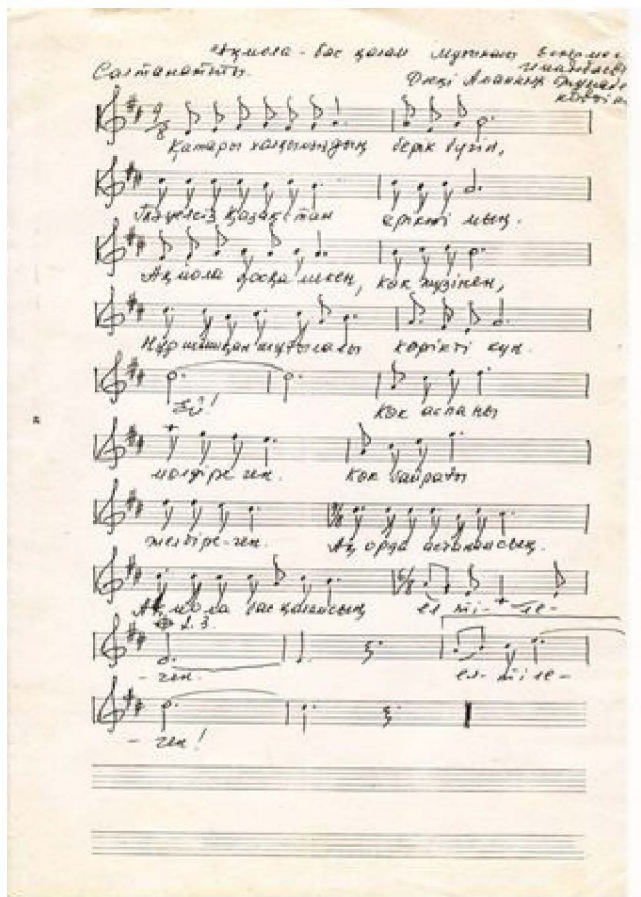 "Ақмола - бас қалам Музыкасы
Салтанатты.
Қатары халқымыздың берік бүгін,
Тәуелсіз Қазақстан ерікті мың.
Ақмола қосқа мекен, көк жүзінен,
Нұр шашқан көрікті күн.
Эй! Көк аспаны
мөлдіре-ген. Көк байрағы
желбіре-ген. Ақ орда астанамсың.
Ақмола бас қаламсың ел ті-ле-
2. 3.
- ген. ел-ті ле-
- ген!